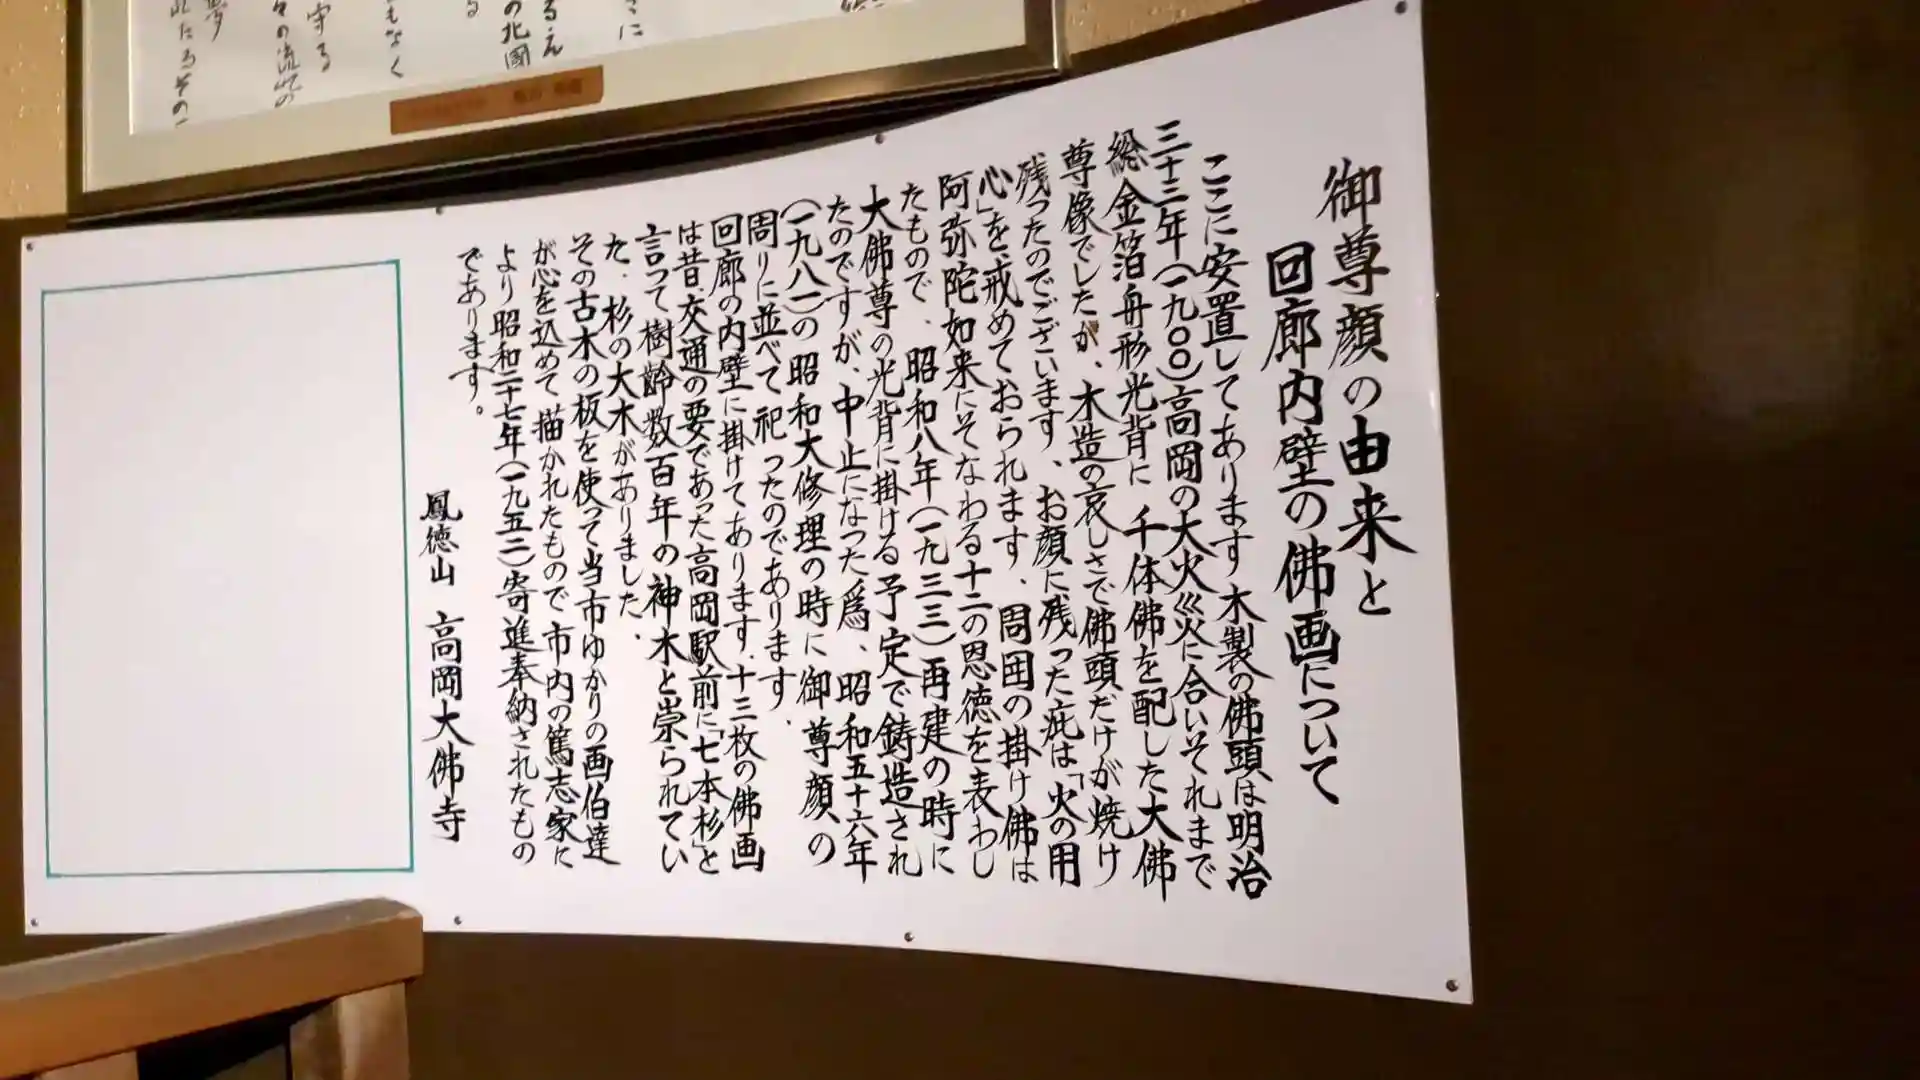 御尊顔の由来と
回廊内壁の佛画について
ここに安置してあります木製の佛頭は明治
三十三年(一九〇〇)高岡の大火災に合いそれまで
総金箔舟形光背に千体佛を配した大佛
尊像でしたが、木造の哀しさで佛頭だけが焼け
残ったのでございます、お顔に残った疵は「火の用
心」を戒めておられます、周囲の掛け佛は
阿弥陀如来にそなわる十二の恩徳を表わし
たもので、昭和八年(一九三三)再建の時に
大佛尊の光背に掛ける予定で鋳造され
たのですが、中止になった為、昭和五十六年
(一九八一)の昭和大修理の時に御尊顔の
周りに並べて祀ったのであります、
回廊の内壁に掛けてあります、十三枚の佛画
は昔、交通の要であった高岡駅前に「七本杉」と
言って樹齢数百年の神木と崇られてい
た、杉の大木がありました、
その古木の板を使って当市ゆかりの画伯達
が心を込めて描かれたもので市内の篤志家に
より昭和二十七年(一九五二)寄進奉納されたもの
であります。
鳳徳山 高岡大佛寺
さに
るえ
の北國
る
もなく
守る
々の流れの
夢
れたるその